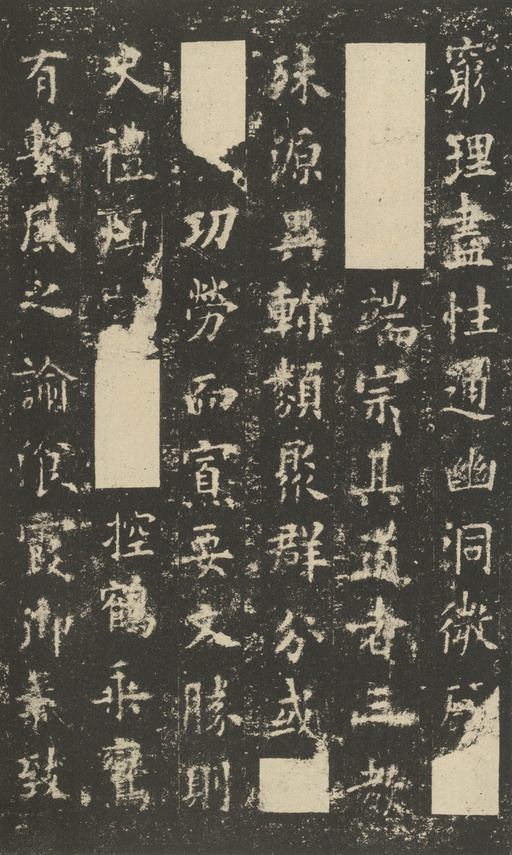 窮理盡性通幽洞微
端宗其道者三教
殊源異轍類聚群分或
功勞而寡要文勝則
史禮煩控鶴乘鸞
有繫風之諭霞御氣致